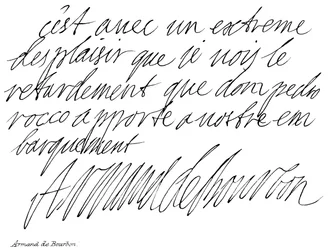 c'est avec un extreme
desplaisir que je vois le
retardement que dom pedro
rocco apporte a nostre em
barquement
Armand de bourbon
Armand de Bourbon